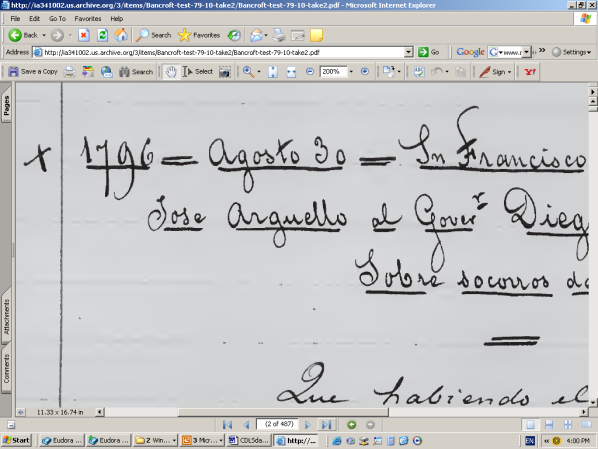 http://ia341002.us.archive.org/3/items/Bancroft-test-79-10-take2/Bancroft-test-79-10-take2.pdf - Microsoft Internet Explorer
File Edit Go To Favorites Help
Back Search Favorites
Address http://ia341002.us.archive.org/3/items/Bancroft-test-79-10-take2/Bancroft-test-79-10-take2.pdf Go Google G www.r Settings
Save a Copy Search Select 200% Sign Y!
Pages
x 1796 = Agosto 30 = Sn Francisco
Jose Arguello al Goverr Dieg
Sobre socorros de
Que habiendo el
Attachments
Comments
11.33 x 16.74 in
(2 of 487)
Start Eudora ... Eudora ... 2 Win... 3 Micr... CDL5da... http://... EN 4:00 PM